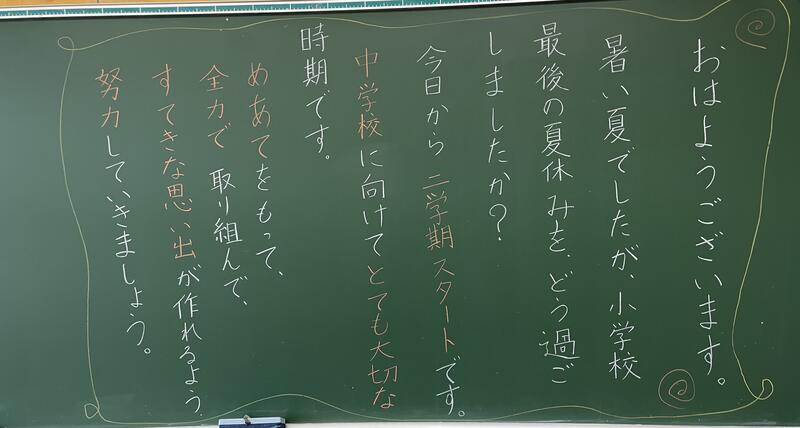 おはようございます。
暑い夏でしたが、小学校
最後の夏休みを、どう過ご
しましたか？
今日から二学期スタートです。
中学校に向けてとても大切な
時期です。
めあてをもって、
全力で取り組んで、
すてきな思い出が作れるよう、
努力していきましょう。